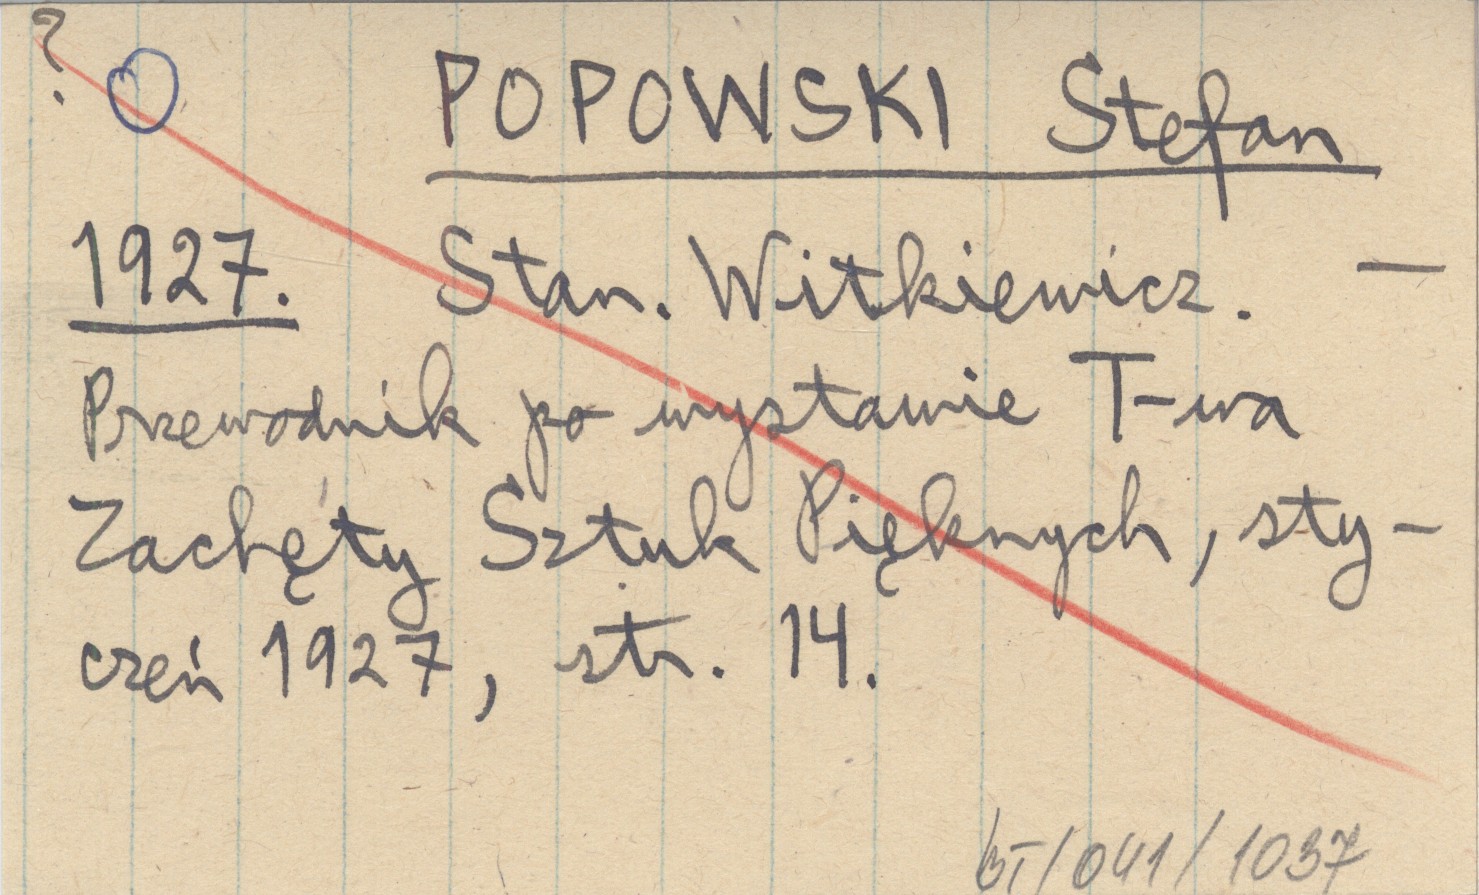 ?
POPOWSKI Stefan
1927. Stan. Witkiewicz. —
Przewodnik po wystawie T-wa
Zachęty Sztuk Pięknych, sty-
czeń 1927, str. 14.
/041/1037